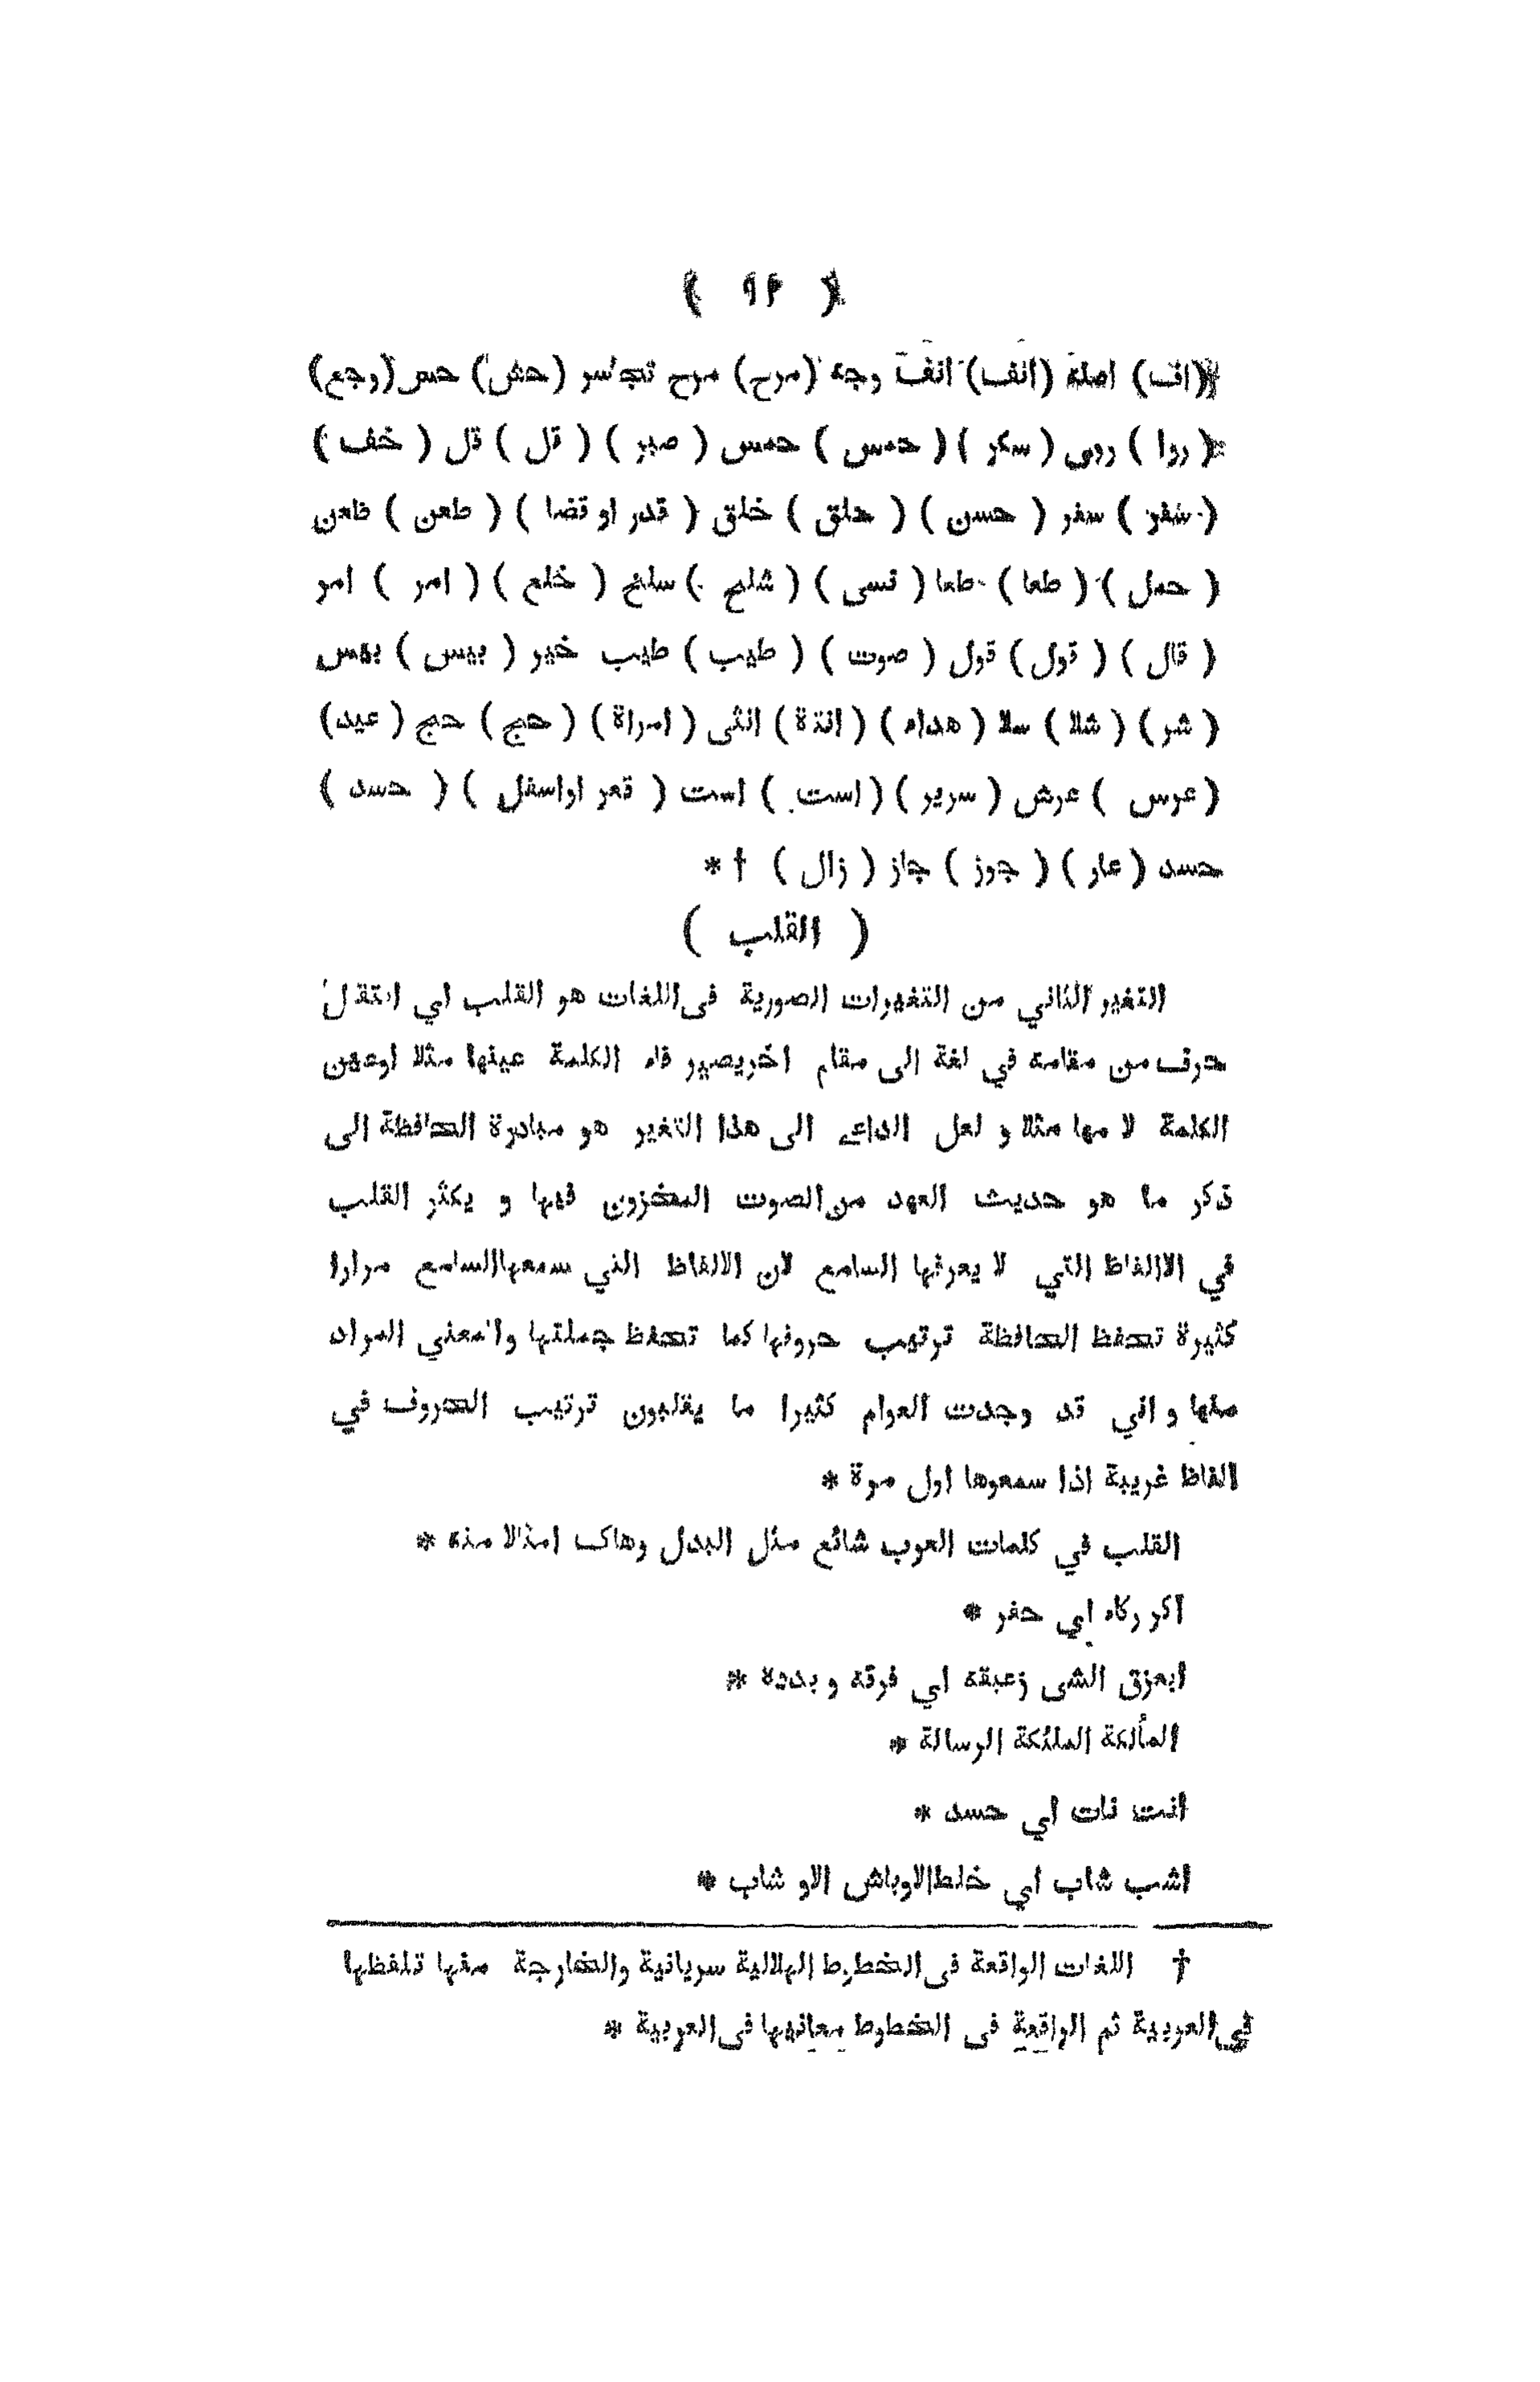 ( ٩٢ )
(اف) اصله (انف) انف وجه (مرح) مرح تجاسر (حش) حس (وجع)
( روا ) روى ( سكر ) ( حمس ) حمس ( صبر ) ( قل ) قل ( خف )
( شفر ) سفر ( حسن ) ( حلق ) خلق ( قدر او قضا ) ( طعن ) ظعن
( حمل ) ( طعا ) طعا ( نسى ) ( شلح ) سلخ ( خلع ) ( امر ) امر
( قال ) ( قول ) قول ( صوت ) ( طيب ) طيب خير ( بيس ) بيس
( شر ) ( شلا ) سلا ( هداء ) ( انتة ) انثى ( امراة ) ( حج ) حج ( عيد )
( عرس ) عرش ( سرير ) ( است ) است ( قعر اواسفل ) ( حسد )
حسد ( عار ) ( جوز ) جاز ( زال ) † *
( القلب )
التغير الثاني من التغيرات الصورية فى اللغات هو القلب اي انتقال
حرف من مقامه في لغة الى مقام اخر يصير فاء الكلمة عينها مثلا اوعين
الكلمة لا مها مثلا و لعل الداعے الى هذا التغير هو مبادرة الحافظة الى
ذكر ما هو حديث العهد من الصوت المخزون فيها و يكثر القلب
في الالفاظ التي لا يعرفها السامع لان الالفاظ التي سمعها السامع مرارا
كثيرة تحفظ الحافظة ترتيب حروفها كما تحفظ جملتها والمعني المراد
منها و اني قد وجدت العوام كثيرا ما يقلبون ترتيب الحروف في
الفاظ غريبة اذا سمعوها اول مرة *
القلب في كلمات العرب شائع مثل البدل وهاك امثالا منه *
اكر ركاء اي حفر *
ابعزق الشى زعبقه اي فرقه و بدده *
المألكة الملئكة الرسالة *
انت نات اي حسد *
اشب شاب اي خلط الاوباش الاو شاب *
† اللغات الواقعة فى الخطوط الهلالية سريانية والخارجة منها تلفظها
في العربية ثم الواقعة فى الخطوط معانيها فى العربية *